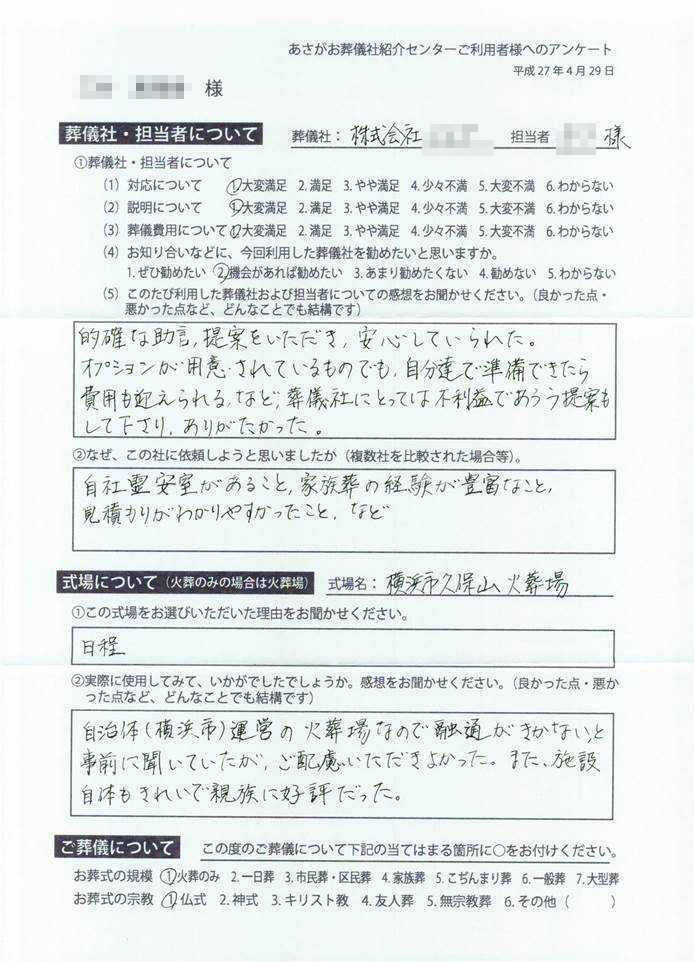 あさがお葬儀社紹介センターご利用者様へのアンケート
平成27年4月29日
様
葬儀社・担当者について 葬儀社： 株式会社 担当者 様
①葬儀社・担当者について
（1）対応について ①大変満足 2.満足 3.やや満足 4.少々不満 5.大変不満 6.わからない
（2）説明について ①大変満足 2.満足 3.やや満足 4.少々不満 5.大変不満 6.わからない
（3）葬儀費用について ①大変満足 2.満足 3.やや満足 4.少々不満 5.大変不満 6.わからない
（4）お知り合いなどに、今回利用した葬儀社を勧めたいと思いますか。
1.ぜひ勧めたい ②機会があれば勧めたい 3.あまり勧めたくない 4.勧めない 5.わからない
（5）このたび利用した葬儀社および担当者についての感想をお聞かせください。（良かった点・
悪かった点など、どんなことでも結構です）
的確な助言,提案をいただき,安心していられた。
オプションが用意されているものでも,自分達で準備できたら
費用も迎えられる,など,葬儀社にとっては不利益であろう提案も
して下さり,ありがたかった。
②なぜ、この社に依頼しようと思いましたか（複数社を比較された場合等）。
自社霊安室があること,家族葬の経験が豊富なこと,
見積もりがわかりやすかったこと,など
式場について（火葬のみの場合は火葬場） 式場名： 横浜市久保山火葬場
①この式場をお選びいただいた理由をお聞かせください。
日程
②実際に使用してみて、いかがでしたでしょうか。感想をお聞かせください。（良かった点・悪か
った点など、どんなことでも結構です）
自治体(横浜市)運営の火葬場なので融通がきかないと
事前に聞いていたが,ご配慮いただきよかった。また、施設
自体もきれいで親族に好評だった。
ご葬儀について この度のご葬儀について下記の当てはまる箇所に○をお付けください。
お葬式の規模 ①火葬のみ 2.一日葬 3.市民葬・区民葬 4.家族葬 5.こぢんまり葬 6.一般葬 7.大型葬
お葬式の宗教 ①仏式 2.神式 3.キリスト教 4.友人葬 5.無宗教葬 6.その他（ ）